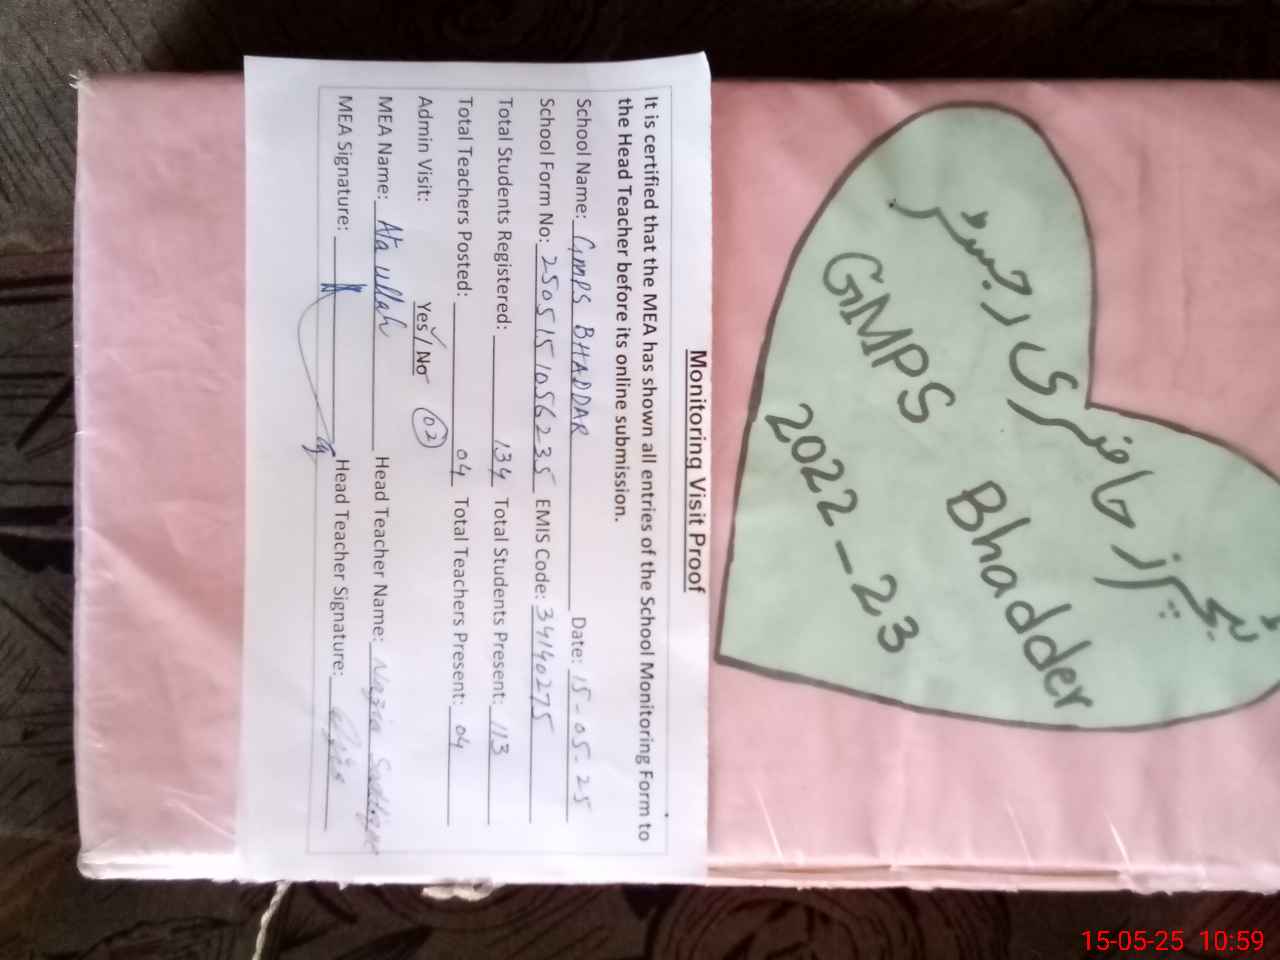 Monitoring Visit Proof
It is certified that the MEA has shown all entries of the School Monitoring Form to
the Head Teacher before its online submission.
School Name: GMPS BHADDAR Date: 15-05-25
School Form No: 2505151056235 EMIS Code: 34140275
Total Students Registered: 134 Total Students Present: 113
Total Teachers Posted: 04 Total Teachers Present: 04
Admin Visit: Yes✓/ No 02
MEA Name: Ata ullah Head Teacher Name: Nazia
MEA Signature: Head Teacher Signature:
ٹیچرز حاضری رجسٹر
GMPS Bhadder
2022-23
15-05-25 10:59